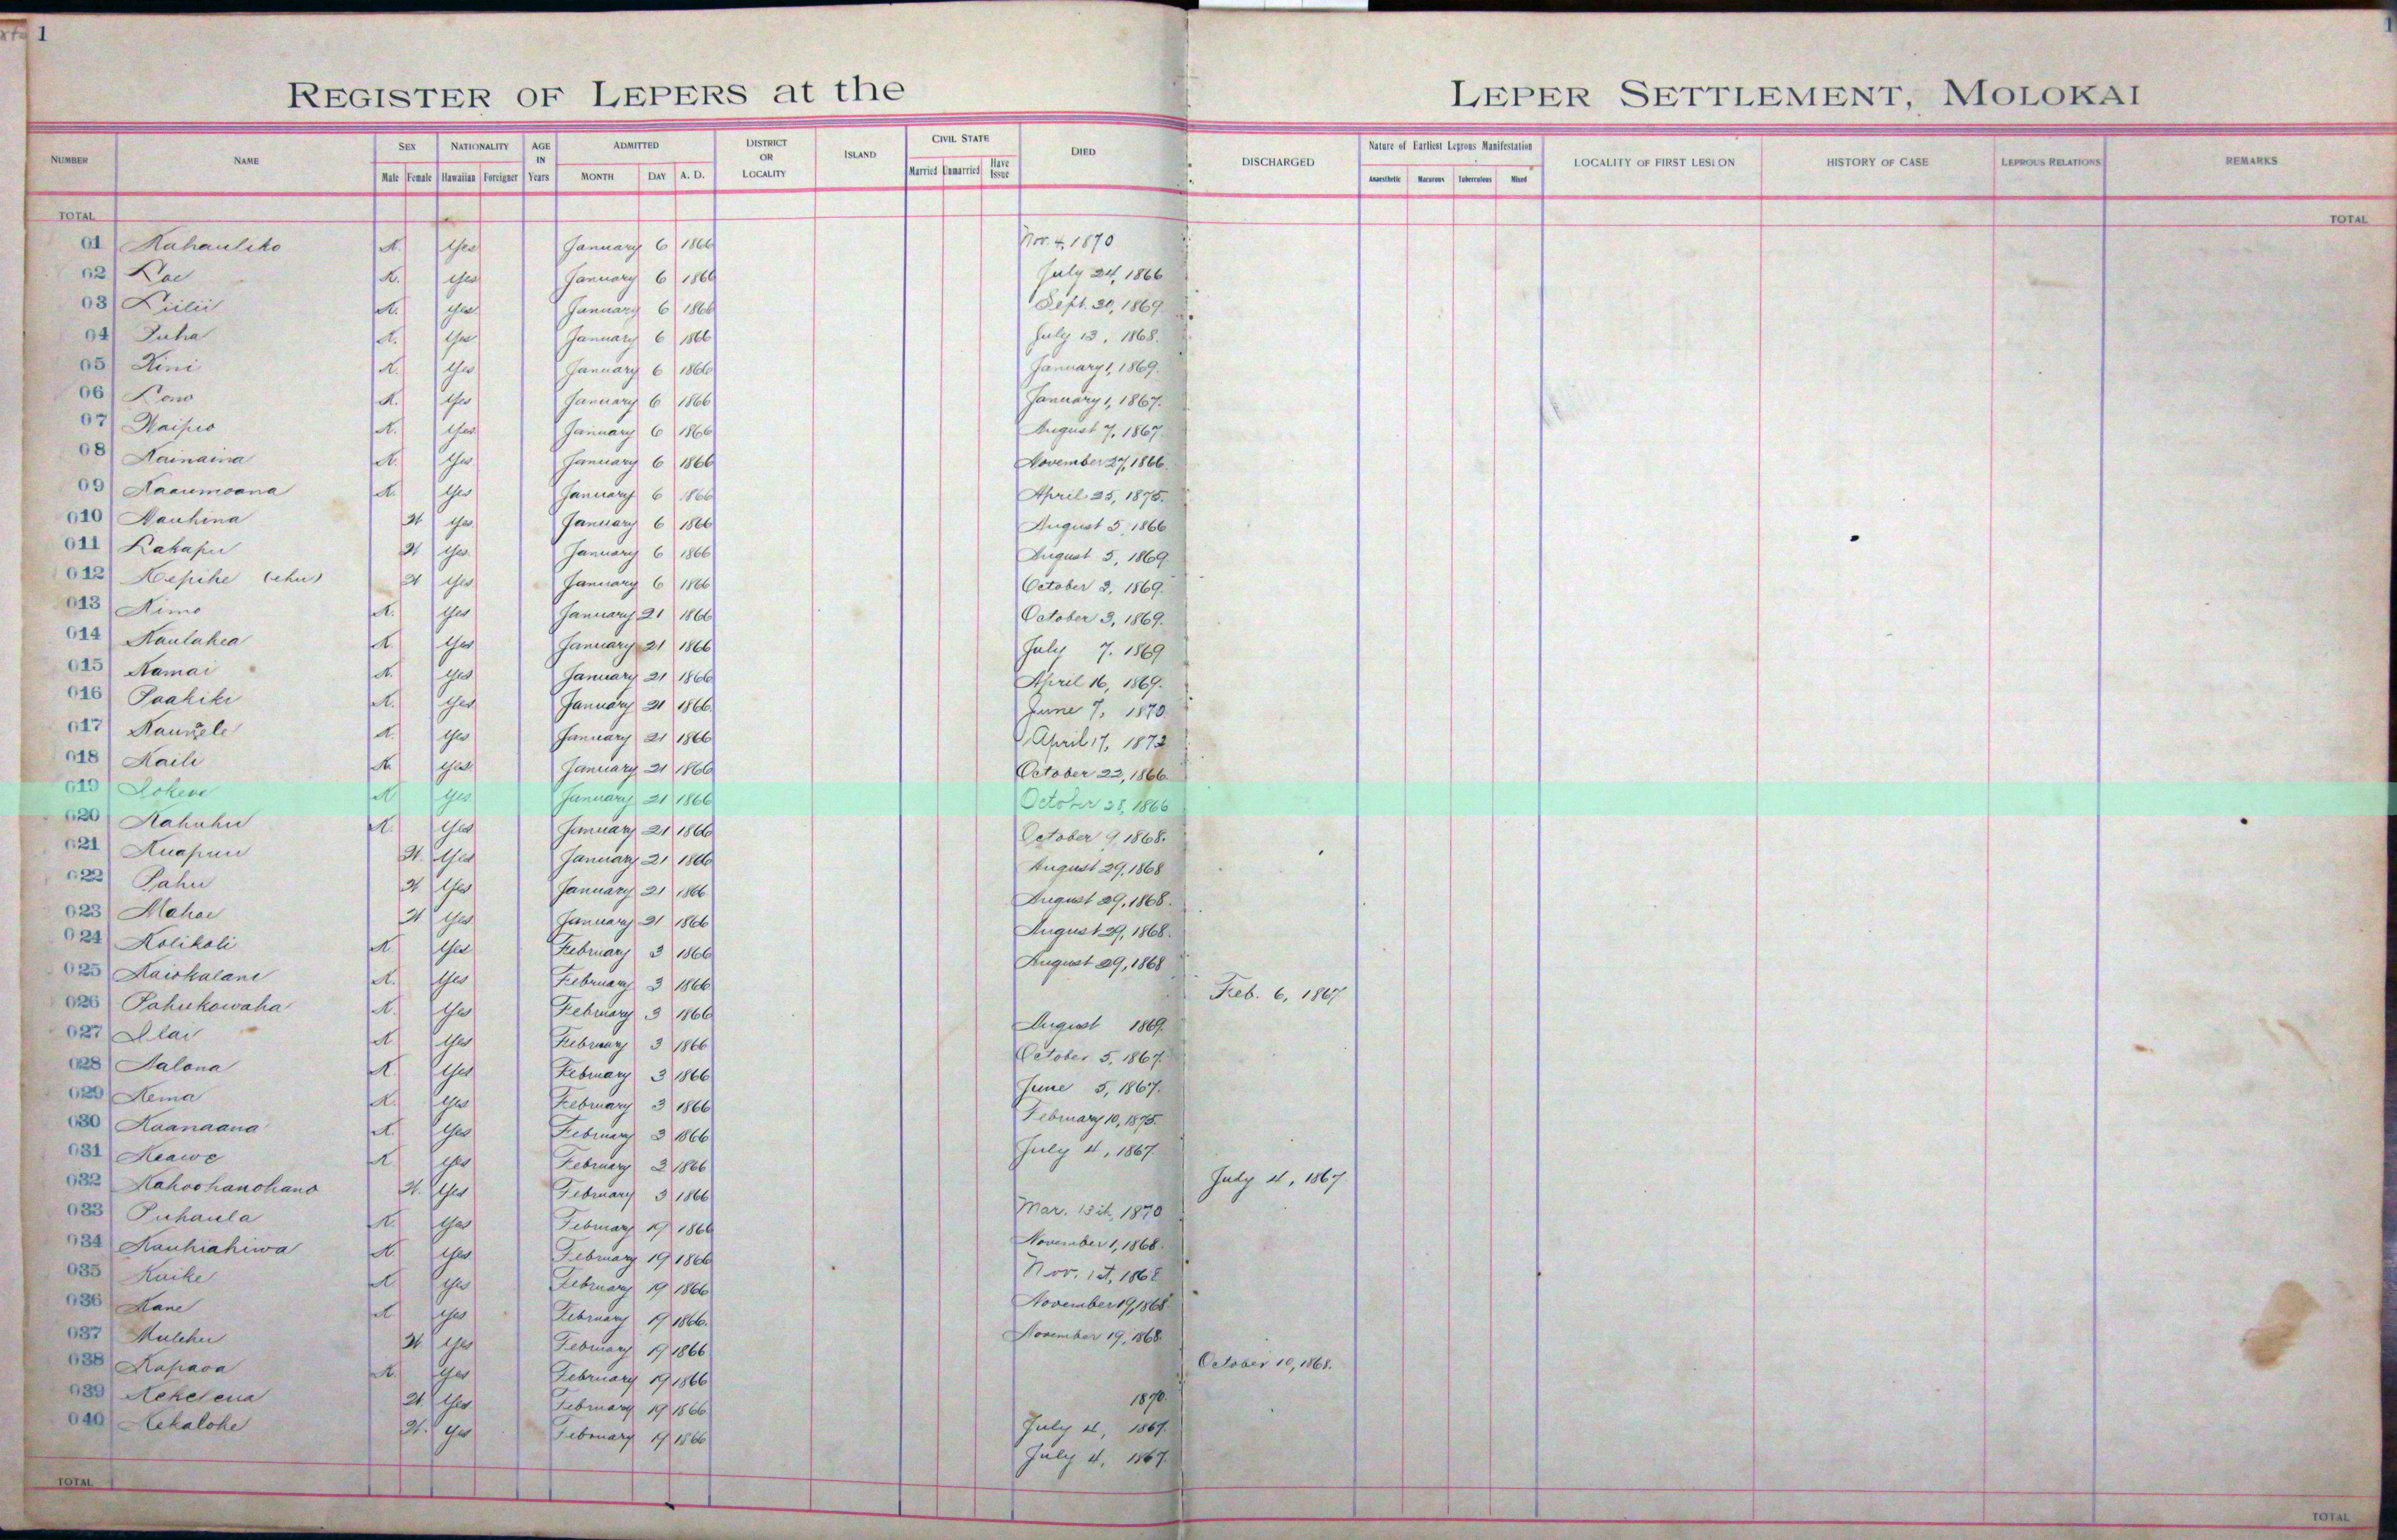 1
1
REGISTER OF LEPERS at the LEPER SETTLEMENT, MOLOKAI
NUMBER NAME SEX Male Female NATIONALITY Hawaiian Foreigner AGE IN Years ADMITTED MONTH DAY A. D. DISTRICT OR LOCALITY ISLAND CIVIL STATE Married Unmarried Have Issue DIED DISCHARGED Nature of Earliest Leprous Manifestation Anaesthetic Macurous Tuberculous Mixed LOCALITY OF FIRST LESION HISTORY OF CASE LEPROUS RELATIONS REMARKS
TOTAL TOTAL
01 Kahauliko M. Yes January 6 1866 Nov. 4, 1870
02 Lae M. Yes January 6 1866 July 24, 1866
03 Liilii M. Yes January 6 1866 Sept. 30, 1869
04 Puha M. Yes January 6 1866 July 13, 1868.
05 Kini M. Yes January 6 1866 January 1, 1869.
06 Lono M. Yes January 6 1866 January 1, 1867.
07 Waipio M. Yes January 6 1866 August 7, 1867.
08 Kainaina M. Yes January 6 1866 November 27, 1866.
09 Kaaumoana M. Yes January 6 1866 April 25, 1875.
010 Nauhina W Yes January 6 1866 August 5, 1866
011 Lakapu W Yes January 6 1866 August 5, 1869.
012 Kepihe (ehu) W Yes January 6 1866 October 3, 1869.
013 Kimo M. Yes January 21 1866 October 3, 1869.
014 Kaulahea M. Yes January 21 1866 July 7. 1869
015 Kamai M. Yes January 21 1866 April 16, 1869.
016 Paakiki M. Yes January 21 1866 June 7, 1870.
017 M. Yes January 21 1866 April 17, 1872
018 Kaili M. Yes January 21 1866 October 23, 1866.
019 Lokene M Yes January 21 1866 October 28, 1866
020 Kahuhu M. Yes January 21 1866 October 9, 1868.
021 Kuapuu W. Yes January 21 1866 August 29, 1868
022 Pahu W Yes January 21 1866 August 29, 1868.
023 Mahoe W Yes January 21 1866 August 29, 1868.
024 Kolikoli M. Yes February 3 1866 August 29, 1868
025 Kaiokalani M. Yes February 3 1866 Feb. 6, 1867
026 Pahukowaha M. Yes February 3 1866 August 1869.
027 Ilai M Yes February 3 1866 October 5, 1867.
028 Nalona M. Yes February 3 1866 June 5, 1867.
029 Kema M. Yes February 3 1866 February 10, 1875.
030 Kaanaana M. Yes February 3 1866 July 4, 1867
031 Keawe M Yes February 3 1866 July 4, 1867
032 Kahoohanohano W. Yes February 3 1866 Mar. 15th, 1870
033 Puhaula M. Yes February 19 1866 November 1, 1868.
034 Kauhiahiwa M. Yes February 19 1866 Nov. 1st, 1868
035 Kuike M Yes February 19 1866 November 19, 1868
036 Kane M Yes February 19 1866. November 19, 1868.
037 Mulehu W Yes February 19 1866 October 10, 1868.
038 Kapaoa M. Yes February 19 1866 1870.
039 Kekelena W Yes February 19 1866 July 4, 1867.
040 Kekalohe W. Yes February 19 1866 July 4, 1867.
TOTAL TOTAL